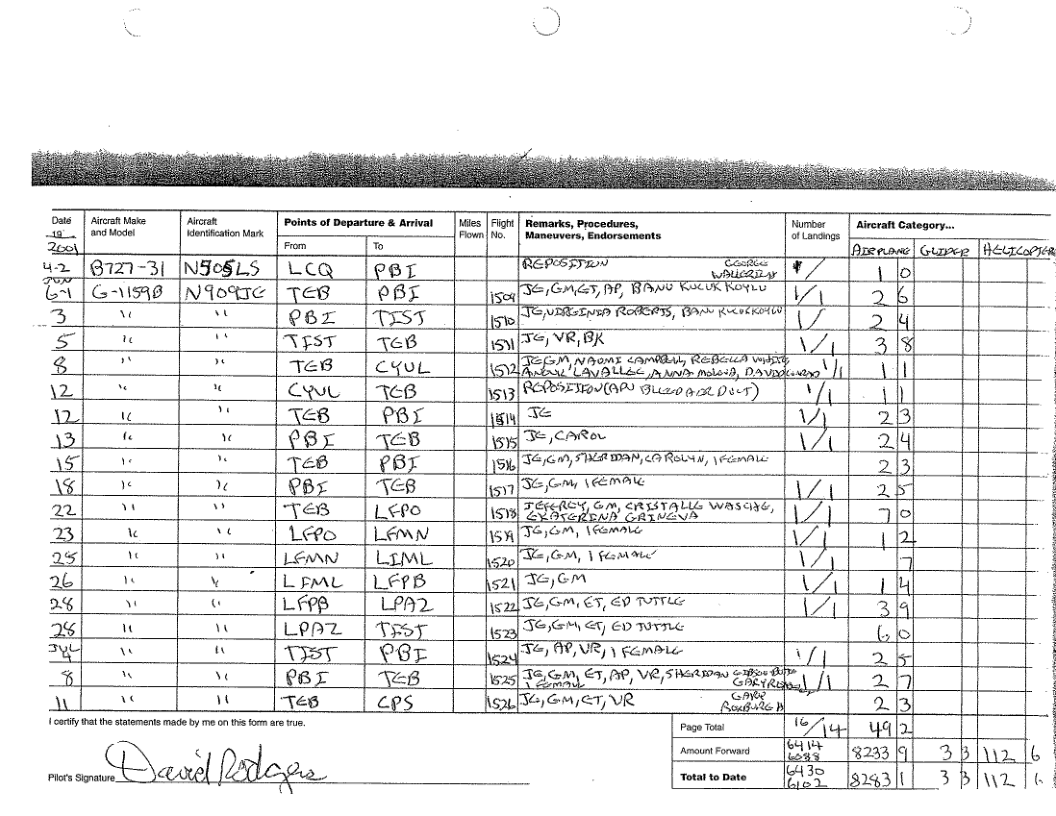 Date Aircraft Make Aircraft Points of Departure & Arrival Miles Flight Remarks, Procedures, Number Aircraft Category...
19 and Model Identification Mark From To Flown No. Maneuvers, Endorsements of Landings
2001 AIRPLANE GLIDER HELICOPTER
4-2 B727-31 N505LS LCQ PBI REPOSITION GEORGE / 1 0
JUN
6-1 G-1159B N909JE TEB PBI 1509 JE, GM, ET, AP, BANU KUCUKKOYLU 1/1 2 6
3 " " PBI TIST 1510 JE, VIRGINIA ROBERTS, BANU KUCUKKOYLU 1/1 2 4
5 " " TIST TEB 1511 JE, VR, BK 1/1 3 8
8 " " TEB CYUL 1512 JE GM, NAOMI CAMPBELL, REBECCA
LAVALLEE, ANNA DAVID 1/1 1 1
12 " " CYUL TEB 1513 REPOSITION (APU BLEED AIR DUCT) 1/1 1 1
12 " " TEB PBI 1514 JE 1/1 2 3
13 " " PBI TEB 1515 JE, CAROL 1/1 2 4
15 " " TEB PBI 1516 JE, GM, SHERIDAN, CAROLYN, 1 FEMALE 2 3
18 " " PBI TEB 1517 JE, GM, 1 FEMALE 1/1 2 5
22 " " TEB LFPO 1518 JEFFREY, GM, CRISTALLE WASCHE,
EKATERINA GRINEVA 1/1 7 0
23 " " LFPO LFMN 1519 JE, GM, 1 FEMALE 1/1 1 2
25 " " LFMN LIML 1520 JE, GM, 1 FEMALE 1/1 7
26 " " LIML LFPB 1521 JE, GM 1/1 1 4
28 " " LFPB LPAZ 1522 JE, GM, ET, ED TUTTLE 1/1 3 9
28 " " LPAZ TIST 1523 JE, GM, ET, ED TUTTLE 6 0
JUL
4 " " TIST PBI 1524 JE, AP, VR, 1 FEMALE 1/1 2 5
8 " " PBI TEB 1525 JE, GM, ET, AP, VR, SHERIDAN GIBSON BUTTE
1 FEMALE 1/1 2 7
11 " " TEB CPS 1526 JE, GM, ET, VR GARY
ROXBURGH 2 3
I certify that the statements made by me on this form are true. Page Total 16/14 49 2
Amount Forward 6414 6088 8233 9 3 3 112 6
Pilot's Signature David Rodgers Total to Date 6430 6102 8283 1 3 3 112 6